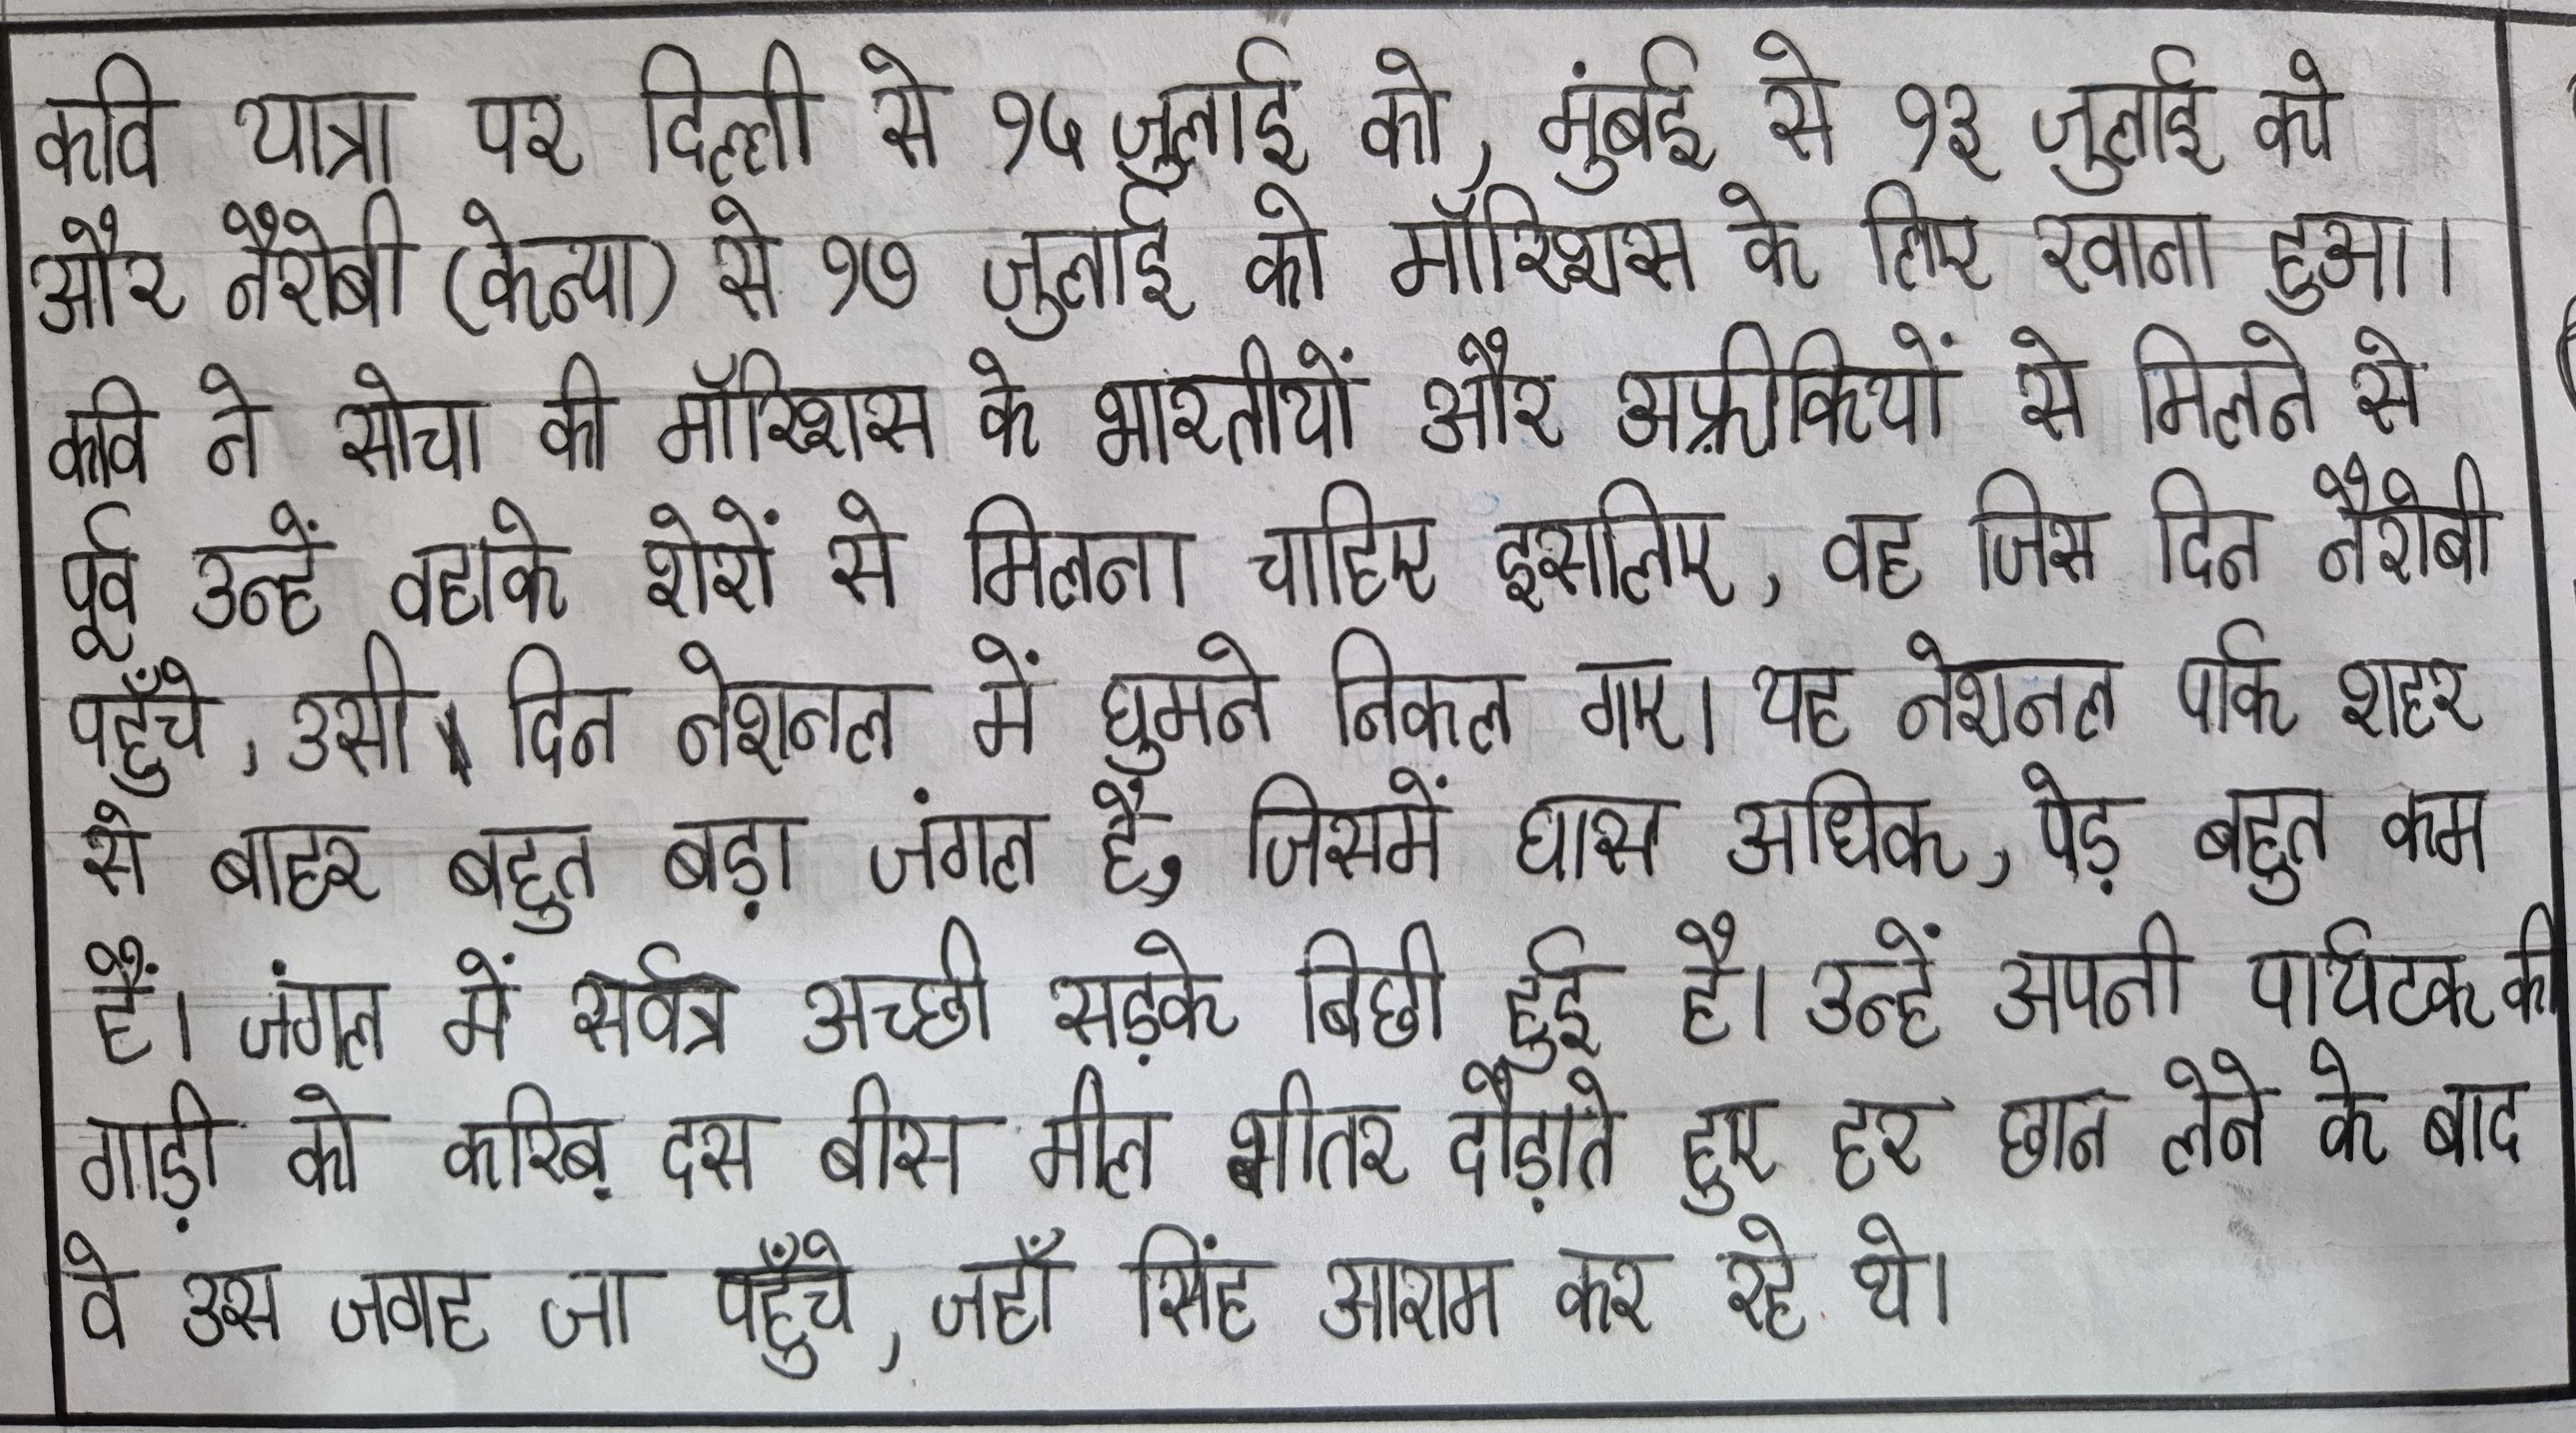 कवि यात्रा पर दिल्ली से १५ जुलाई को, मुंबई से १३ जुलाई को
और नैरोबी (केन्या) से १७ जुलाई को मॉरिशस के लिए रवाना हुआ।
कवि ने सोचा की मॉरिशस के भारतीयों और अफ़्रीकियों से मिलने से
पूर्व उन्हें वहाके शेरों से मिलना चाहिए इसलिए, वह जिस दिन नैरोबी
पहुँचे, उसी दिन नेशनल में घुमने निकल गए। यह नेशनल पार्क शहर
से बाहर बहुत बड़ा जंगल हैं, जिसमें घास अधिक, पेड़ बहुत कम
हैं। जंगल में सर्वत्र अच्छी सड़के बिछी हुई है। उन्हें अपनी पार्यटक की
गाड़ी को करिब दस बीस मील भीतर दौड़ाते हुए हर छान लेने के बाद
वे उस जगह जा पहुँचे, जहाँ सिंह आराम कर रहे थे।